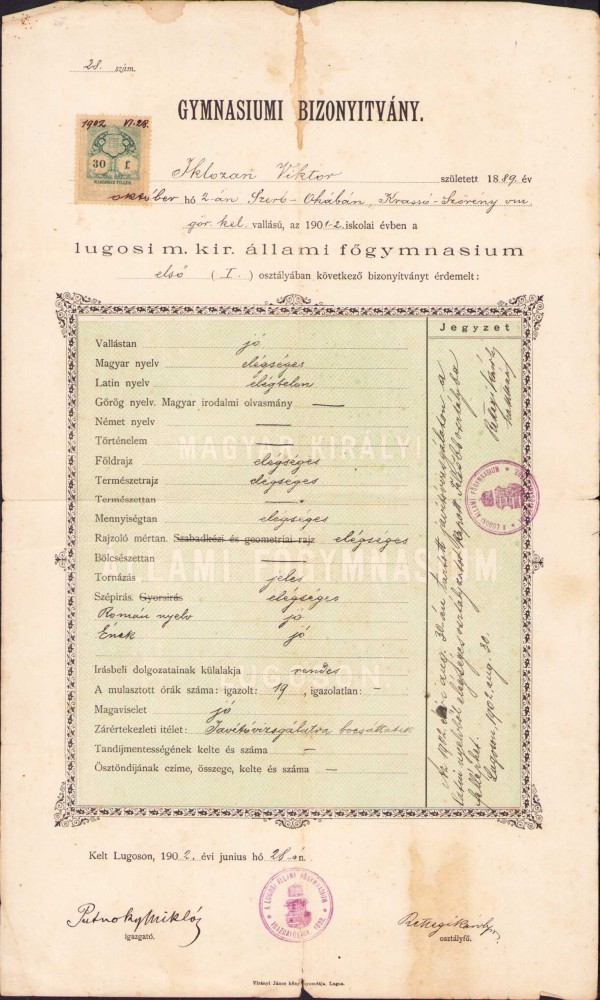 28. szám.
GYMNASIUMI BIZONYITVÁNY.
1902 VI.28.
30 f.
MAGYAR KIR. FILLÉR
Iklozan Viktor született 1889. év
október hó 2-án Szerb-Ohábán, Krassó-Szörény vm.
gör. kel. vallású, az 1901-2. iskolai évben a
lugosi m. kir. állami főgymnasium
első (I.) osztályában következő bizonyítványt érdemelt:
Jegyzet
Vallástan jó
Magyar nyelv elégséges
Latin nyelv elégtelen
Görög nyelv. Magyar irodalmi olvasmány —
Német nyelv —
Történelem —
MAGYAR KIRÁLYI
Földrajz elégséges
Természetrajz elégséges
Természettan —
Mennyiségtan elégséges
Rajzoló mértan. Szabadkézi és geometriai rajz elégséges
Bölcsészettan —
ÁLLAMI FŐGYMNASIUM
Tornázás jeles
Szépírás. Gyorsírás elégséges
Román nyelv jó
Ének jó
LUGOSON
Irásbeli dolgozatainak külalakja rendes
A mulasztott órák száma: igazolt: 19, igazolatlan: –
Magaviselet jó
Zárértekezleti itélet: Javítóvizsgálatra bocsáttatik
Tandíjmentességének kelte és száma –
Ösztöndíjának czime, összege, kelte és száma –
Az 1902. évi aug. 30-án tartott javítóvizsgálaton a
latin nyelvből elégséges osztályzatot kapott. Felsőbb osztályba
felléphet.
Lugoson, 1902. aug. 30.
Rettegi Károly
osztályfő
A LUGOSI ÁLLAMI FŐGYMNASIUM
Kelt Lugoson, 1902. évi junius hó 28-án.
A LUGOSI ÁLLAMI FŐGYMNASIUM IGAZGATÓSÁGA
Putnoky Miklós
igazgató.
Rettegi Károly
osztályfő.
Virányi János könyvnyomdája, Lugos.